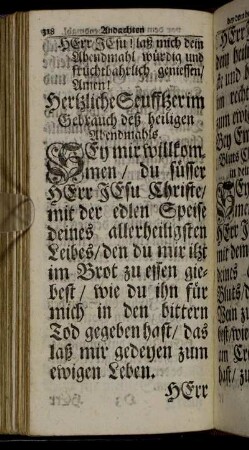 318 Andachten
HErr JEsu! laß mich dein
Abendmahl würdig und
früchtbahrlich geniessen/
Amen!
Hertzliche Seufftzer im
Gebrauch deß heiligen
Abendmahls.
SEy mir willkom-
men/ du süsser
HErr JEsu Christe/
mit der edlen Speise
deines allerheiligsten
Leibes/ den du mir itzt
im Brot zu essen gie-
best/ wie du ihn für
mich in den bittern
Tod gegeben hast/ das
laß mir gedeyen zum
ewigen Leben.
HErr